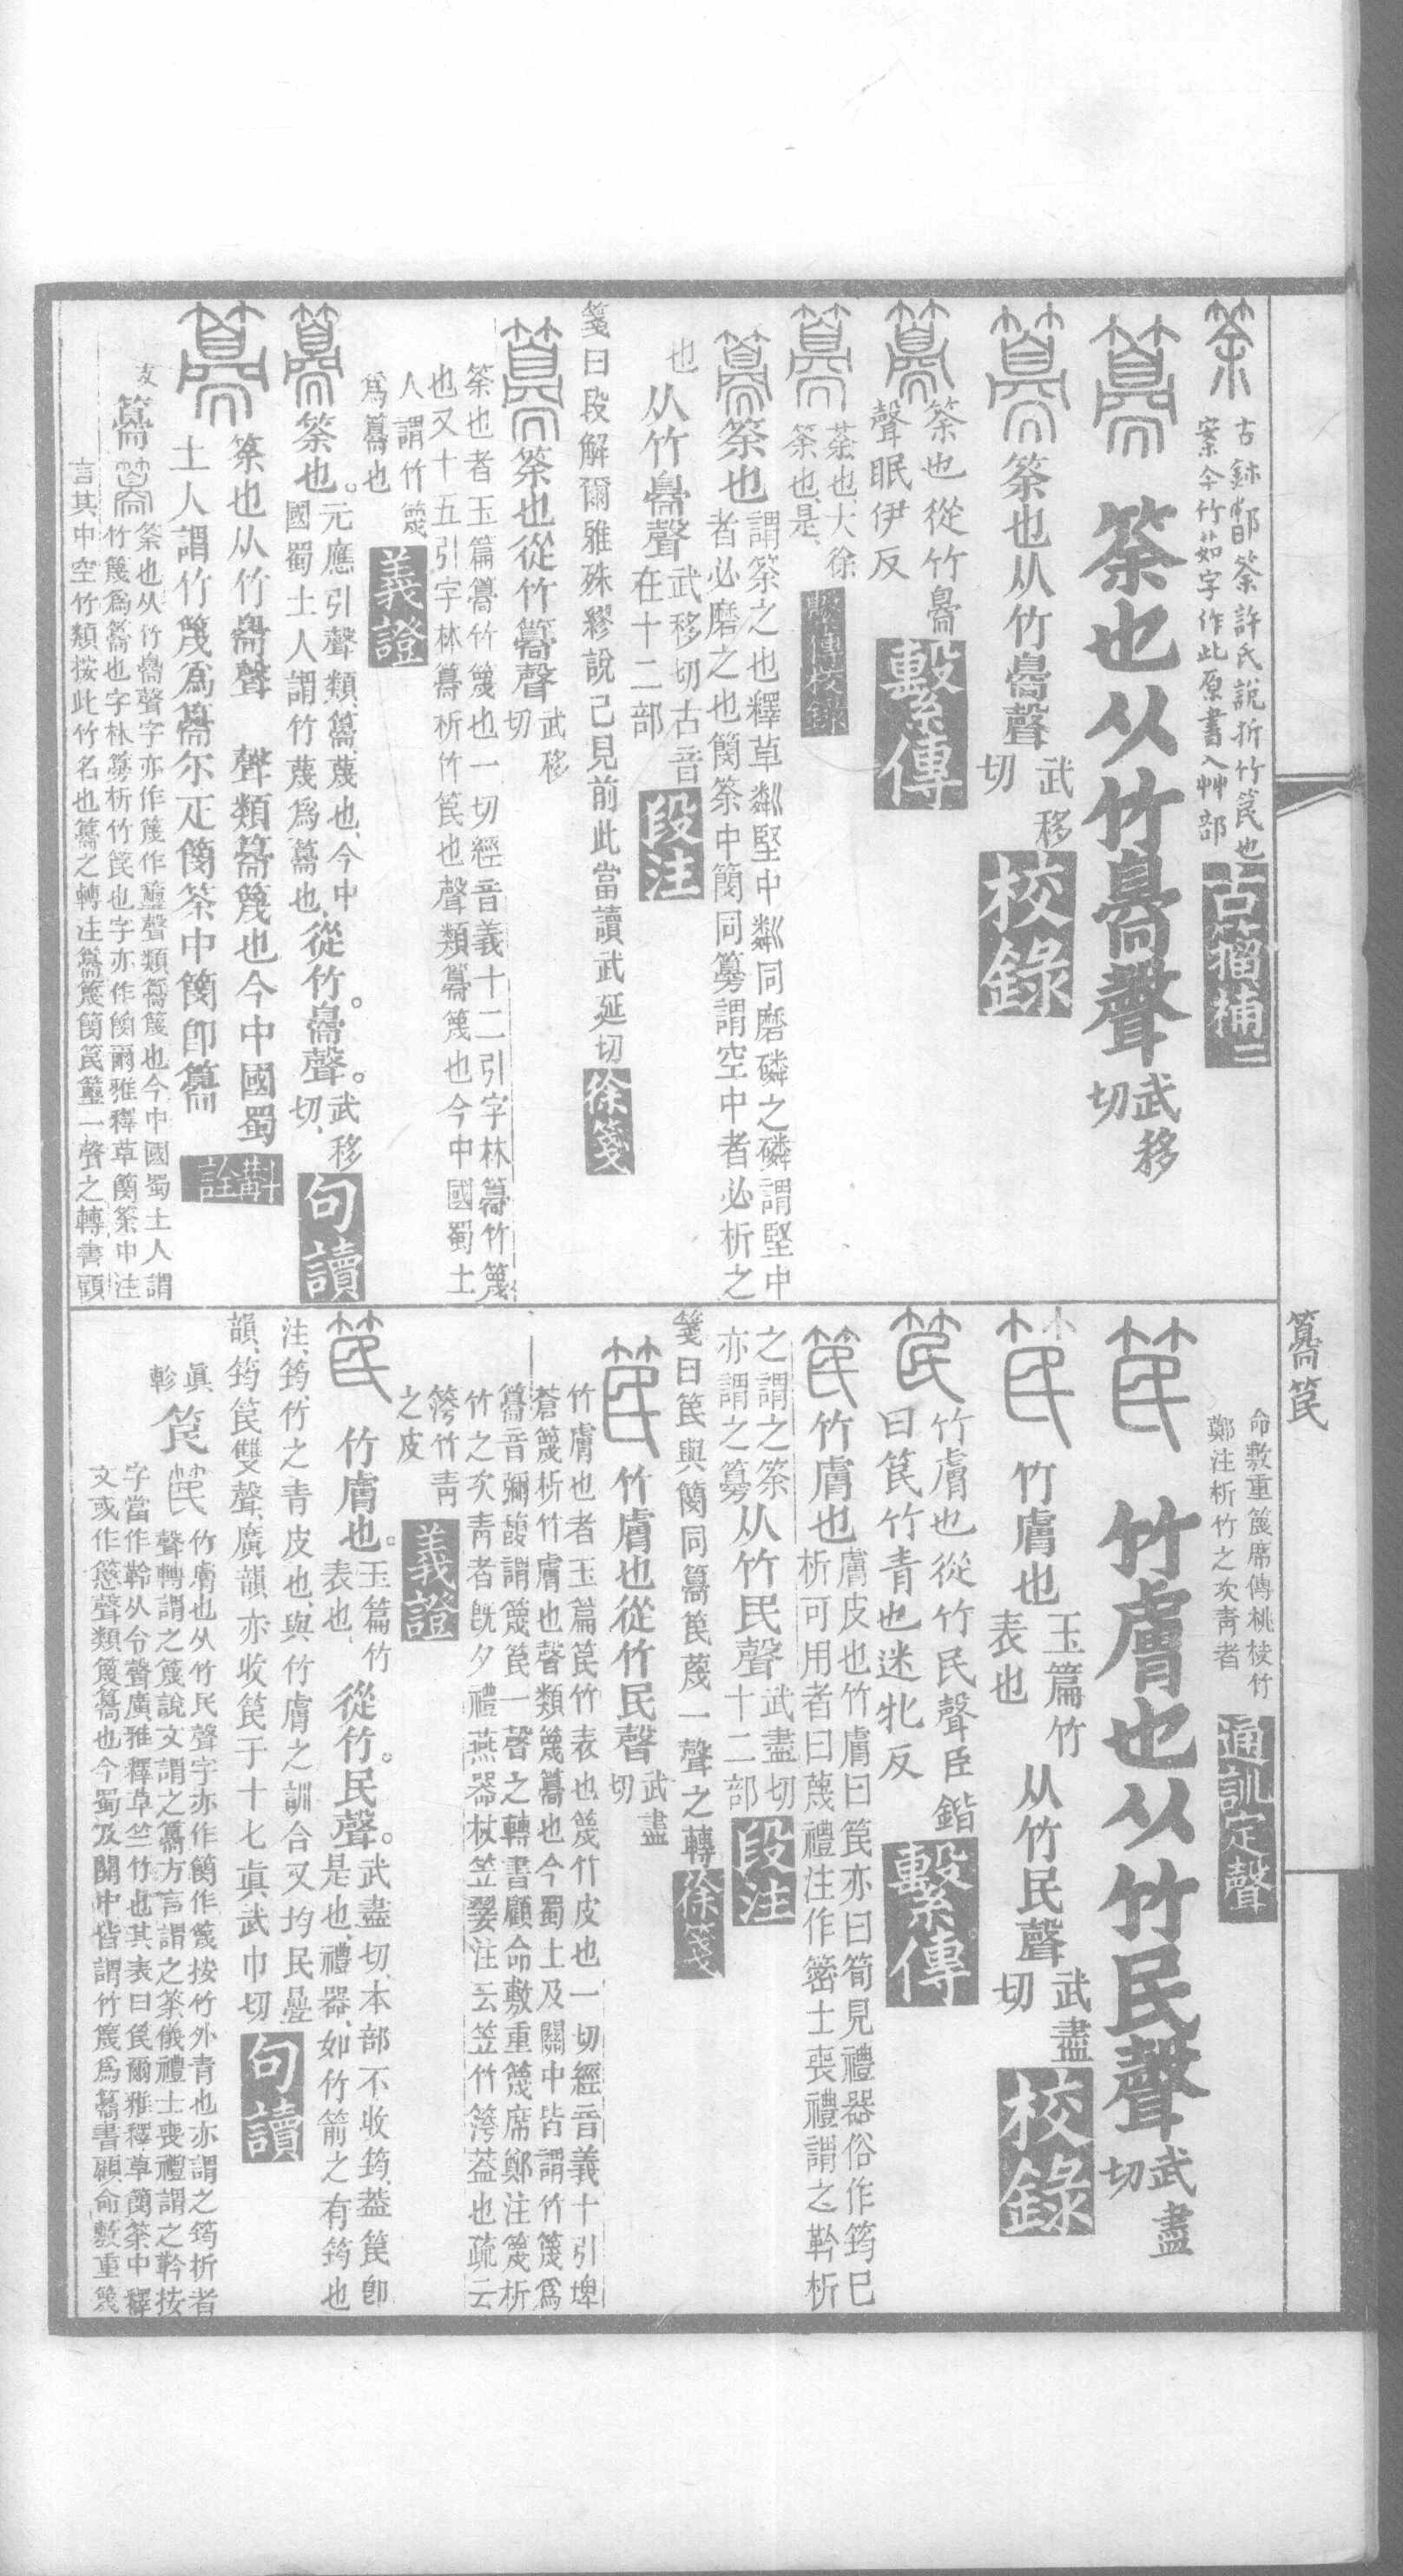 古鉢䣛筡許氏說折竹笢也
案今竹茹字作此原書入艸部
古籀補二
筡也从竹臱聲
武移切
筡也从竹臱聲
武移切
校錄
筡也從竹臱
聲眠伊反
繫傳
筡也大徐
筡也是
繫傳校錄
筡也
謂筡之也釋草粼堅中粼同磨磷之磷謂堅中
者必磨之也簢筡中簢同䉲謂空中者必析之
也
从竹臱聲
武移切古音
在十二部
段注
箋曰段解爾雅殊繆說已見前此當讀武延切
徐箋
筡也從竹臱聲
武移切
筡也者玉篇䉲竹篾也一切經音義十二引字林䉲竹篾
也又十五引字林䉲析竹笢也聲類䉲篾也今中國蜀土
人謂竹篾
爲䉲也
義證
筡也。
元應引聲類䉲篾也今中
國蜀土人謂竹蔑爲䉲也
從竹。臱聲。
武移切
句讀
筡也从竹臱聲 聲類䉲篾也今中國蜀
土人謂竹篾爲䉲尔疋簢筡中簢卽䉲
斠詮
支
䉲
筡也从竹臱聲字亦作篾作䉲聲類䉲篾也今中國蜀土人謂
竹篾爲䉲也字林䉲析竹笢也字亦作簢爾雅釋草簢筡中注
言其中空竹類按此竹名也䉲之轉注䉲篾簢笢一聲之轉書顧
䉲笢
命敷重篾席傳桃枝竹
鄭注析竹之次靑者
通訓定聲
竹膚也从竹民聲
武盡切
竹膚也
玉篇竹
表也
从竹民聲
武盡切
校錄
竹膚也從竹民聲臣鍇
曰笢竹青也迷牝反
繫傳
竹膚也
膚皮也竹膚曰笢亦曰筍見禮器俗作筠已
析可用者曰蔑禮注作䈼士喪禮謂之靲析
之謂之筡
亦謂之䉲
从竹民聲
武盡切
十二部
段注
箋曰笢與簢同䉲笢蔑一聲之轉
徐箋
竹膚也從竹民聲
武盡切
竹膚也者玉篇笢竹表也篾竹皮也一切經音義十引埤
蒼篾析竹膚也聲類篾䉲也今蜀土及關中皆謂竹篾爲
䉲音彌䉲謂篾笢一聲之轉書顧命敷重篾席鄭注篾析
竹之次靑者旣夕禮燕器杖笠翣注云笠竹䈝葢也疏云
䈝竹靑
之皮
義證
竹膚也。
玉篇竹
表也
從竹。民聲。
武盡切本部不收筠葢笢卽
是也禮器如竹箭之有筠也
注筠竹之靑皮也與竹膚之訓合又均民疊
韻筠笢雙聲廣韻亦收笢于十七眞武巾切
句讀
眞
軫
笢
竹膚也从竹民聲字亦作簢作篾按竹外青也亦謂之筠析者
聲轉謂之篾說文謂之䉲方言謂之筡儀禮士喪禮謂之靲按
字當作靲从今聲廣雅釋草竺竹也其表曰笢爾雅釋草簢筡中釋
文或作慜聲類篾䉲也今蜀及關中皆謂竹篾爲䉲書顧命敷重篾